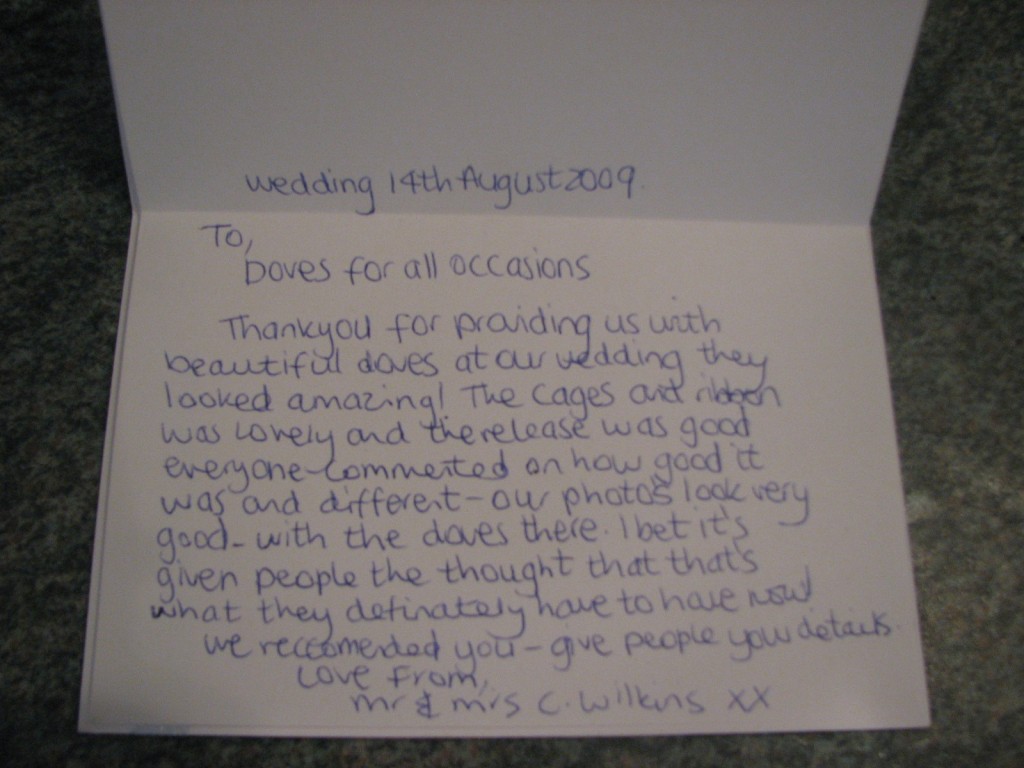 wedding 14th August 2009.
To,
Doves for all occasions
Thankyou for providing us with
beautiful doves at our wedding they
looked amazing! The cages and ribbon
was lovely and the release was good
everyone commented on how good it
was and different - our photo's look very
good - with the doves there. I bet it's
given people the thought that that's
what they definately have to have now!
we reccomended you - give people your details.
Love From,
mr & mrs C. Wilkins xx